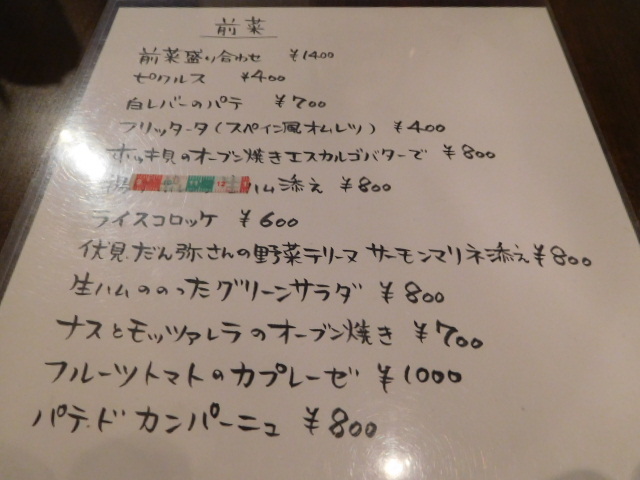 前菜
前菜盛り合わせ ¥1400
ピクルス ¥400
白レバーのパテ ¥700
フリッタータ(スペイン風オムレツ) ¥400
ホッキ貝のオーブン焼きエスカルゴバターで ¥800
ハム添え ¥800
ライスコロッケ ¥600
伏見だん弥さんの野菜テリーヌ サーモンマリネ添え ¥800
生ハムののったグリーンサラダ ¥800
ナスとモッツァレラのオーブン焼き ¥700
フルーツトマトのカプレーゼ ¥1000
パテ・ド カンパーニュ ¥800